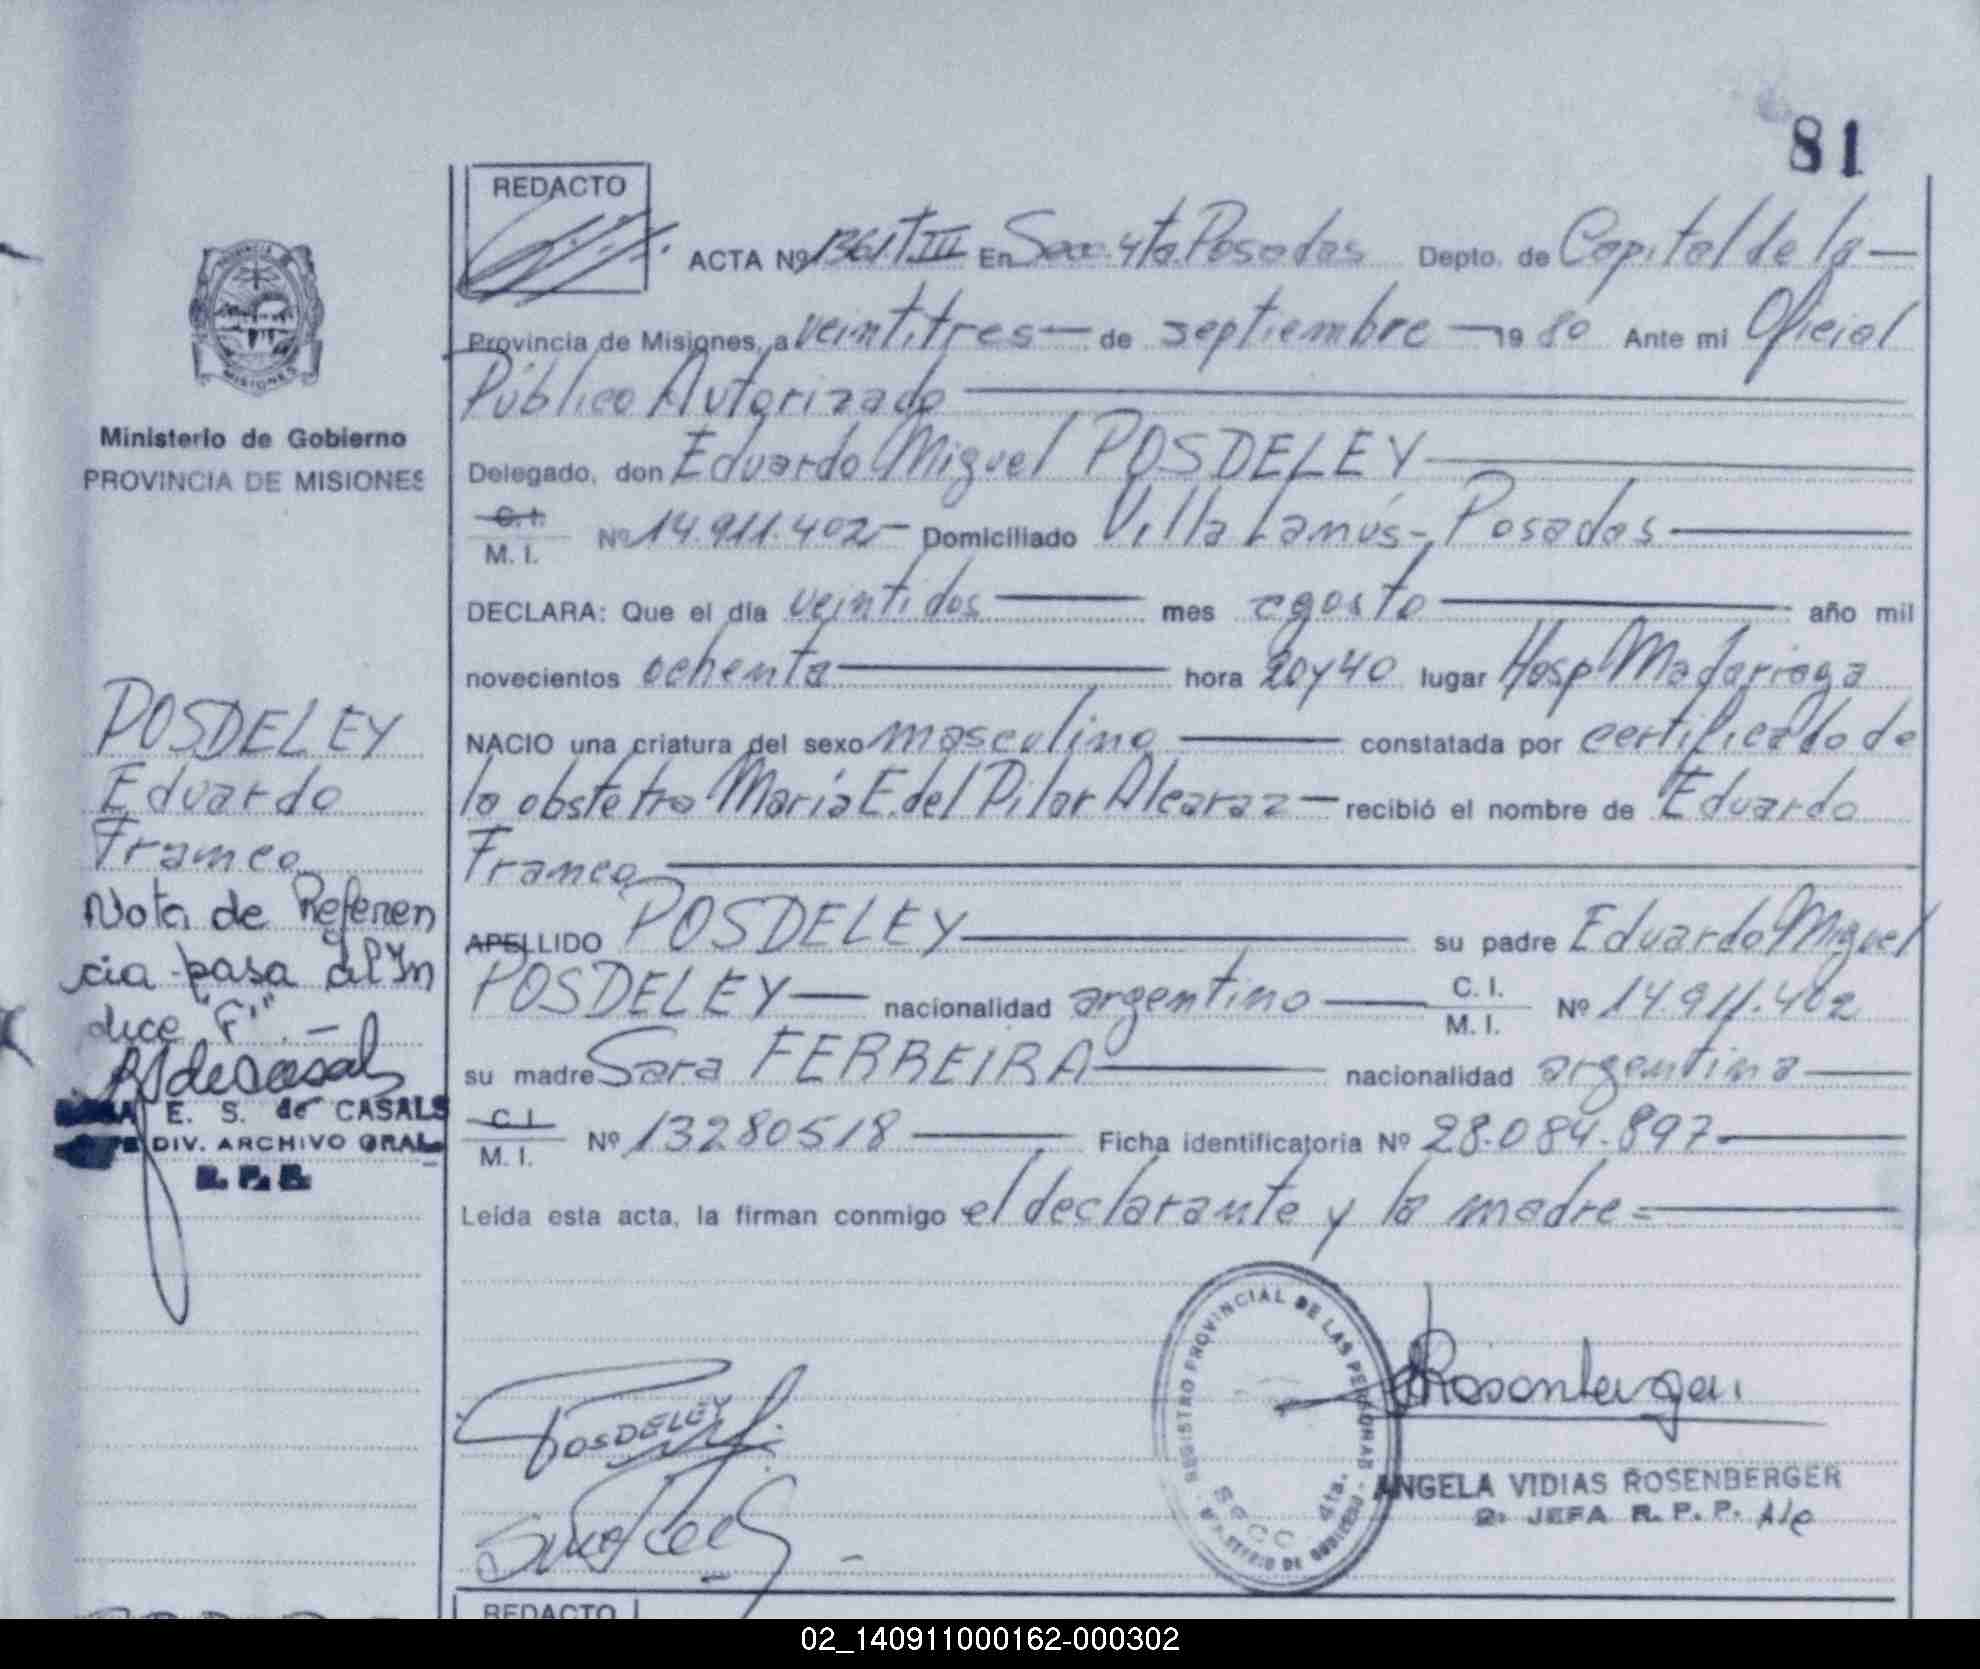 81
REDACTO
ACTA Nº 1361 T III En Secc. 4ta. Posadas Depto. de Capital de la
Provincia de Misiones, a veintitres de septiembre 19 80 Ante mi Oficial
Público Autorizado
Delegado, don Eduardo Miguel POSDELEY
C. I.
M. I. Nº 14.911.402 Domiciliado Villa Lanús - Posadas
DECLARA: Que el día veintidos mes agosto año mil
novecientos ochenta hora 20 y 40 lugar Hosp Madariaga
NACIO una criatura del sexo masculino constatada por certificado de
la obstetra María E. del Pilar Alcaraz recibió el nombre de Eduardo
Franco
APELLIDO POSDELEY su padre Eduardo Miguel
POSDELEY nacionalidad argentino C. I. M. I. Nº 14.911.402
su madre Sara FERREIRA nacionalidad argentina
C. I.
M. I. Nº 13280518 Ficha identificatoria Nº 28.084.897
Leída esta acta, la firman conmigo el declarante y la madre
PROVINCIA
MISIONES
Ministerio de Gobierno
PROVINCIA DE MISIONES
POSDELEY
Eduardo
Franco
Nota de Referen
cia pasa al In
dice "F".-
E. S. de CASALS
DIV. ARCHIVO GRAL
R. P. P.
POSDELEY
REGISTRO PROVINCIAL DE LAS PERSONAS
SECC. 4ta.
MINISTERIO DE GOBIERNO
Rosenberger
ANGELA VIDIAS ROSENBERGER
2º JEFA R. P. P. A/c
REDACTO
02_140911000162-000302